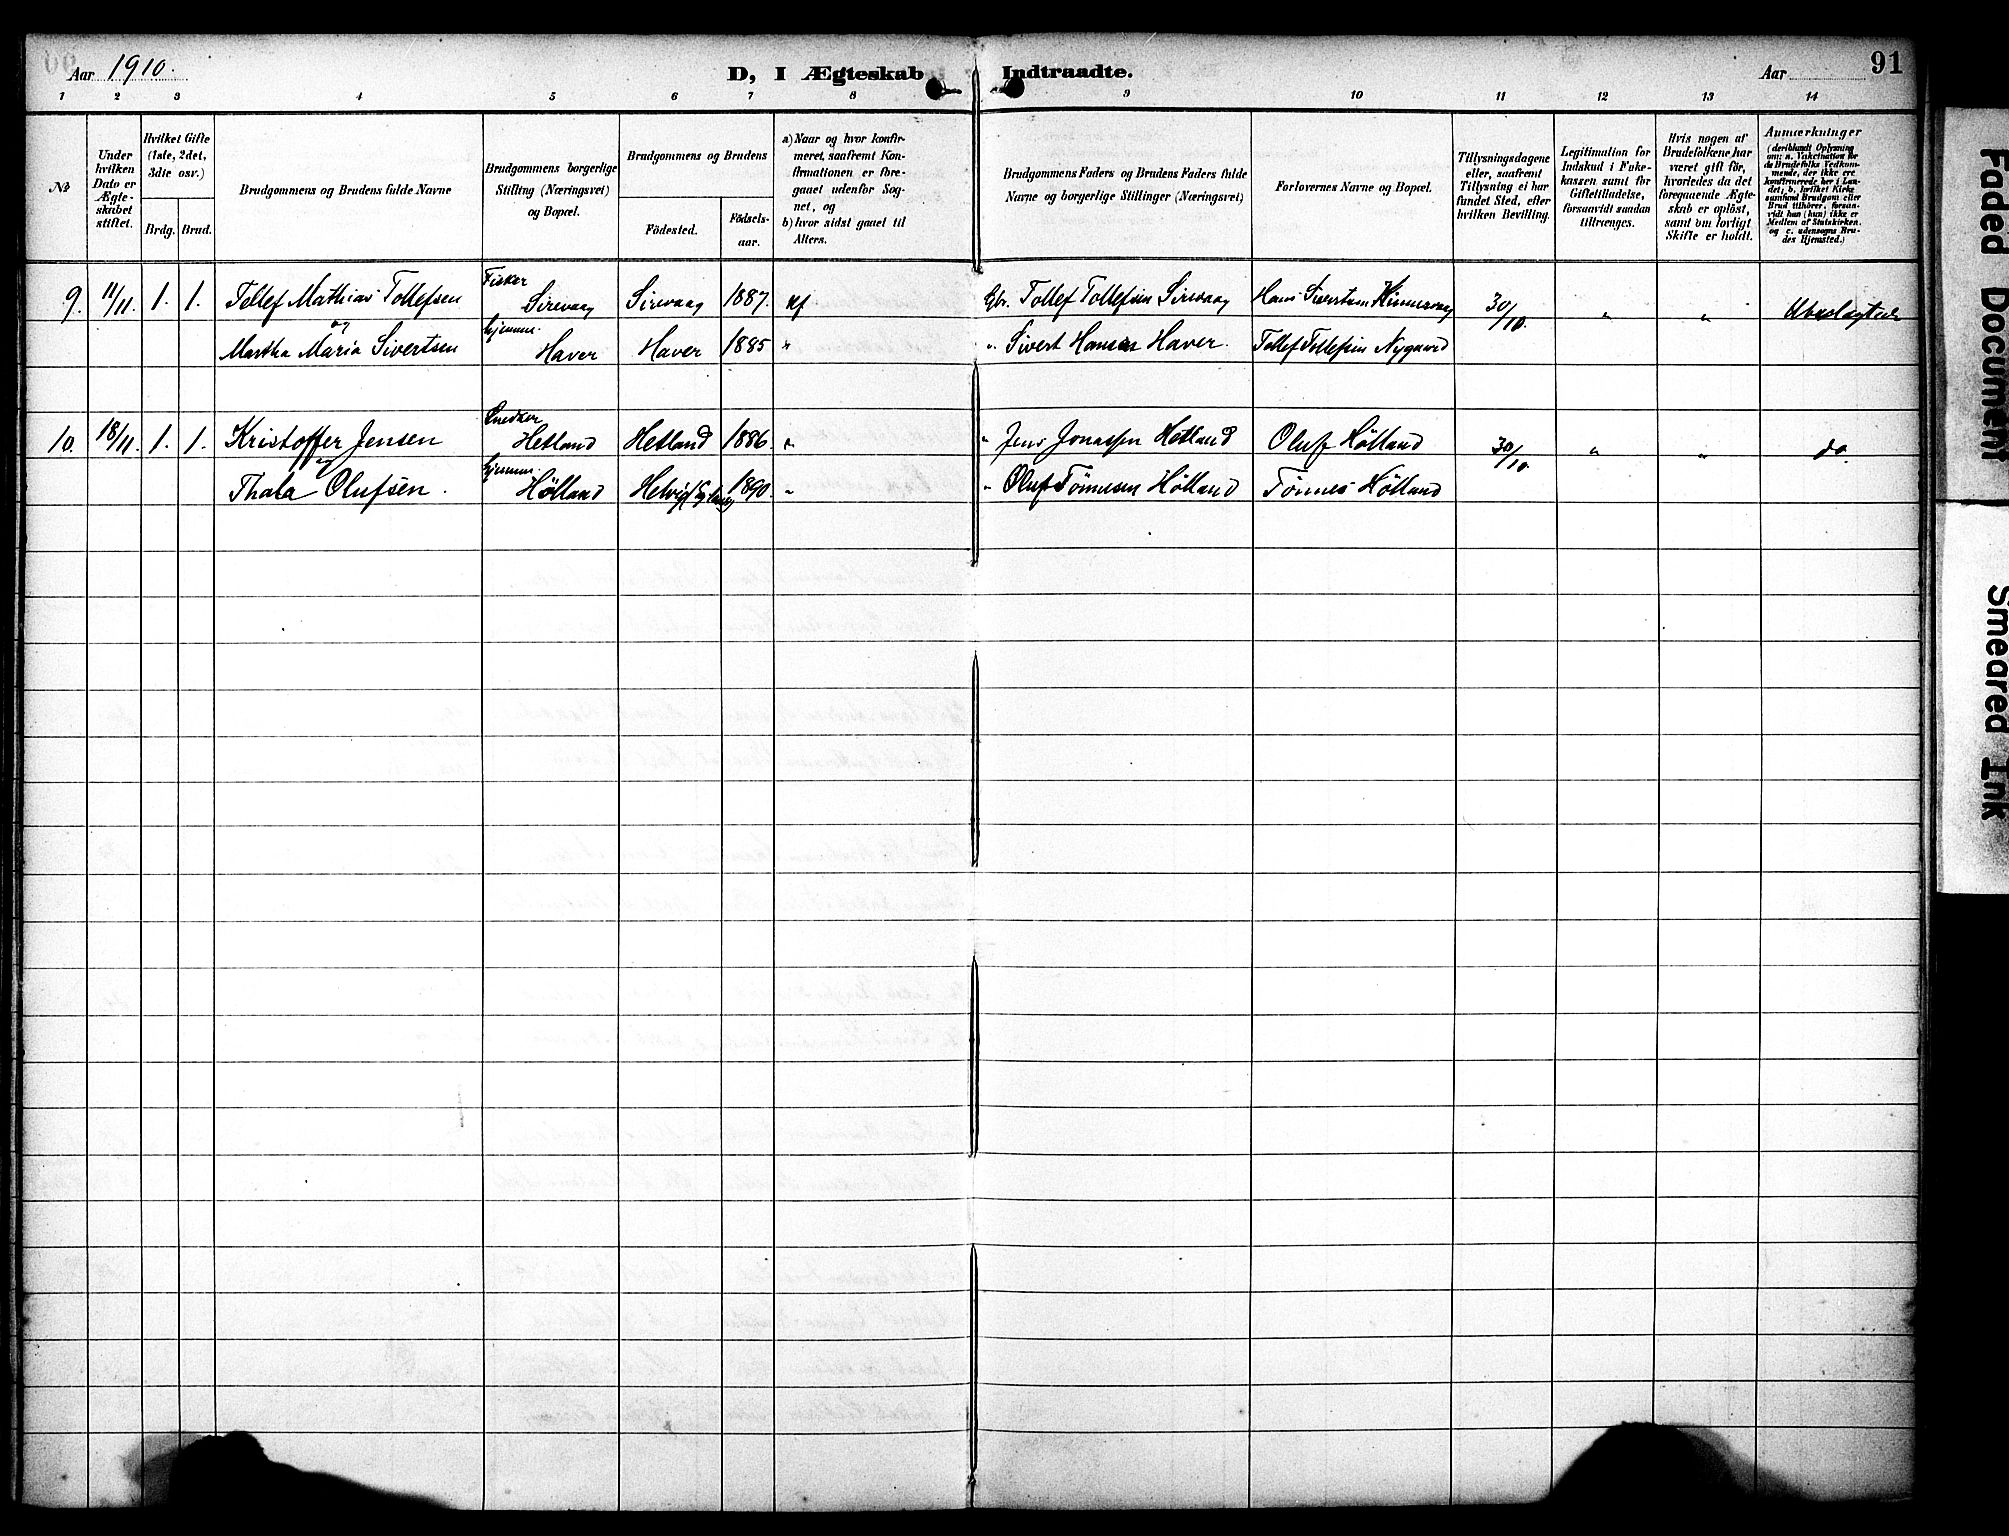 Aar 1910.
D, I Ægteskab Indtraadte.
Aar
91
1 2 3 4 5 6 7 8 9 10 11 12 13 14
№
Under hvilken Dato er Ægteskabet stiftet.
Hvilket Gifte (1ste, 2det, 3die osv.)
Brdg. Brud.
Brudgommens og Brudens fulde Navne
Brudgommens borgerlige Stilling (Næringsvei) og Bopæl.
Brudgommens og Brudens
Födested.
Födsels-aar.
a) Naar og hvor konfirmeret, saafremt Konfirmationen er foregaaet udenfor Sognet, og
b) hvor sidst gaaet til Alters.
Brudgommens Faders og Brudens Faders fulde Navne og borgerlige Stillinger (Næringsvei)
Forlovernes Navne og Bopæl.
Tillysningsdagene eller, saafremt Tillysning ei har fundet Sted, efter hvilken Bevilling.
Legitimation for Indskud i Enkekassen samt for Giftetilladelse, forsaavidt saadan tiltrænges.
Hvis nogen af Brudefolkene har været gift før, hvorledes da det foregaaende Ægteskab er opløst, samt om lovligt Skifte er holdt.
Anmærkninger (deriblandt Oplysning om: a. Vakcination for de Brudefolks Vedkommende, der ikke ere konfirmerede her i Landet; b. hvilket Kirkesamfund Brudgom eller Brud tilhörer, forsaavidt han (hun) ikke er Medlem af Statskirken, og c. udensogns Brudes Hjemsted.)
9. 11/11. 1. 1. Tollef Mathias Tollefsen Fisker Sirevaag Sirevaag 1887. Kf Gbr. Tollef Tollefsen Sirevaag Hans Sivertsen 30/10. " "
og
Martha Maria Sivertsen hjemme. Haver Haver 1885 " " Sivert Hansen Haver. Tollef Tollefsen Nygaard
10. 18/11. 1. 1. Kristoffer Jensen Snedker Hetland Hetland 1886. " " Jens Jonassen Hetland Oluf Hölland 30/10. " " do.
og
Thala Olufsen. hjemme. Hölland 1890. " " Oluf Tönnesen Hölland Tönnes Hölland
Faded Document
Smeared Ink